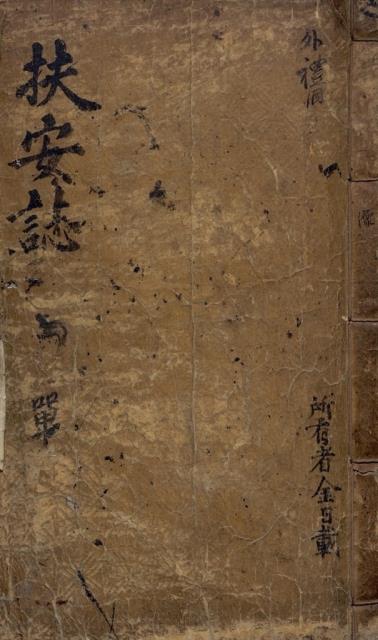 外禮洞
所有者金百載
扶安誌
單